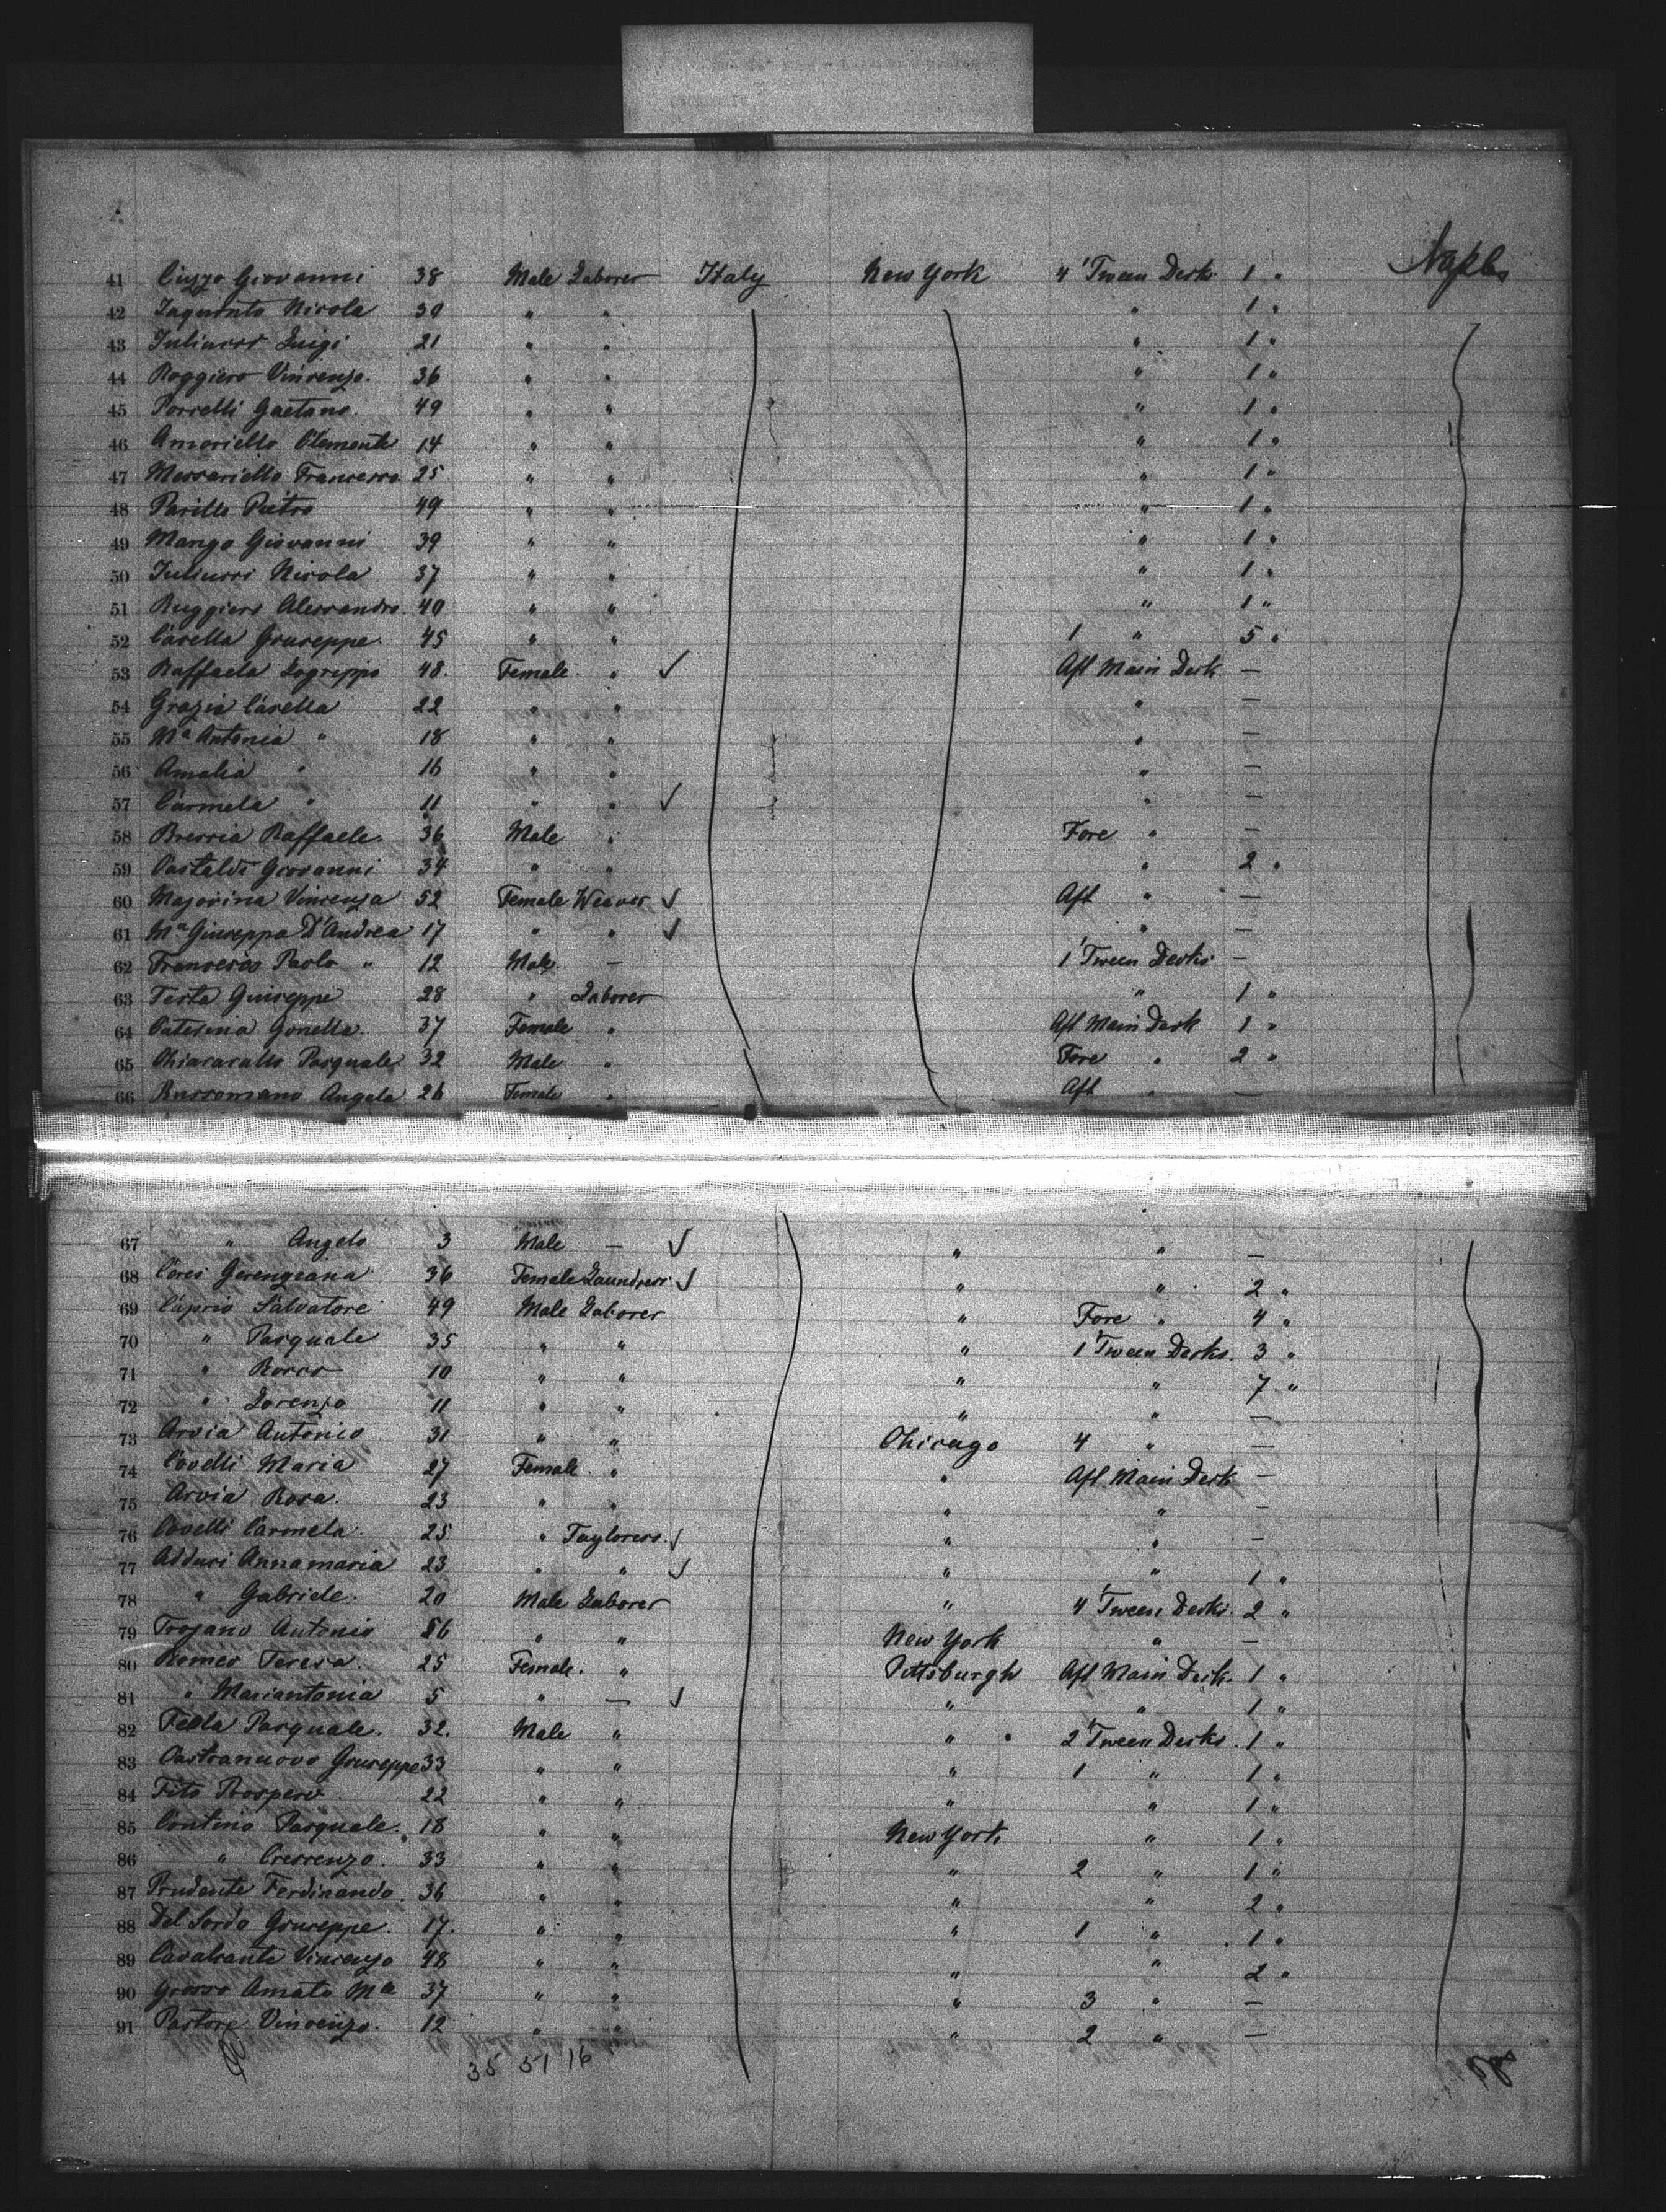 41 Ciuzzo Giovanni 38 Male Laborer Italy New York 4 'Tween Decks 1 " Naples
42 Iaquinto Nicola 30 " " " 1 "
43 Iuliucci Luigi 21 " " " 1 "
44 Roggiero Vincenzo. 36 " " " 1 "
45 Porcelli Gaetano. 49 " " " 1 "
46 Amoriello Clemente 14 " " " 1 "
47 Messariello Francesco 25 " " " 1 "
48 Parillo Pietro 49 " " " 1 "
49 Mango Giovanni 39 " " " 1 "
50 Iuliucci Nicola 37 " " " 1 "
51 Ruggiero Alessandro. 40 " " " 1 "
52 Carella Giuseppe. 45 " " 1 " 5 "
53 Raffaela Logreppo 48. Female. " ✓ Aft Main Deck —
54 Grazia Carella 22 " " " —
55 Ma Antonia " 18 " " " —
56 Amalia " 16 " " " —
57 Carmela " 11 " " ✓ " —
58 Brescia Raffaele. 36 Male " Fore " —
59 Castaldi Giovanni 34 " " " 2 "
60 Majorina Vincenza 52 Female Weaver ✓ Aft " —
61 Ma Giuseppa D'Andrea 17 " " ✓ " —
62 Francesco Paolo " 12 Male — 1 'Tween Decks —
63 Testa Giuseppe 28 " Laborer " 1 "
64 Caterina Gonella. 37 Female " Aft Main Deck 1 "
65 Chiaravallo Pasquale 32 Male " Fore " 2 "
66 Russomano Angela 26 Female " Aft " —
67 " Angelo 3 Male — ✓ " " —
68 Ceres 36 Female Laundress ✓ " " 2 "
69 Caprio Salvatore 49 Male Laborer " Fore " 4 "
70 " Pasquale 35 " " " 1 'Tween Decks. 3 "
71 " Rocco 10 " " " " 7 "
72 " Lorenzo 11 " " " " —
73 Arvia Antonio 31 " " Chicago 4 " —
74 Covelli Maria 27 Female. " " Aft Main Deck —
75 Arvia Rosa. 23 " " " " —
76 Covelli Carmela. 25 " Tayloress. ✓ " " —
77 Adduci Annamaria 23 " " ✓ " " 1 "
78 " Gabriele. 20 Male Laborer " 4 'Tween Decks. 2 "
79 Trojano Antonio 56 " " New York " —
80 Romeo Teresa. 25 Female. " Pittsburgh Aft Main Deck. 1 "
81 " Mariantonia 5 " — ✓ " " 1 "
82 Fella Pasquale. 32. Male " " 2 'Tween Decks. 1 "
83 Castranuovo Giuseppe 33 " " " 1 " 1 "
84 Tito Prospero 22 " " " " 1 "
85 Contino Pasquale. 18 " " New York " 1 "
86 " Crescenzo. 33 " " " 2 " 1 "
87 Prudente Ferdinando. 36 " " " " 2 "
88 Del Sordo Giuseppe. 17. " " " 1 " 1 "
89 Cavalcante Vincenzo 48 " " " " 2 "
90 Grosso Amato Ma 37 " " " 3 " —
91 Pastore Vincenzo. 12 " " " 2 " —
35 51 16